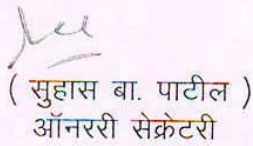 ( सुहास बा. पाटील )
ऑनररी सेक्रेटरी